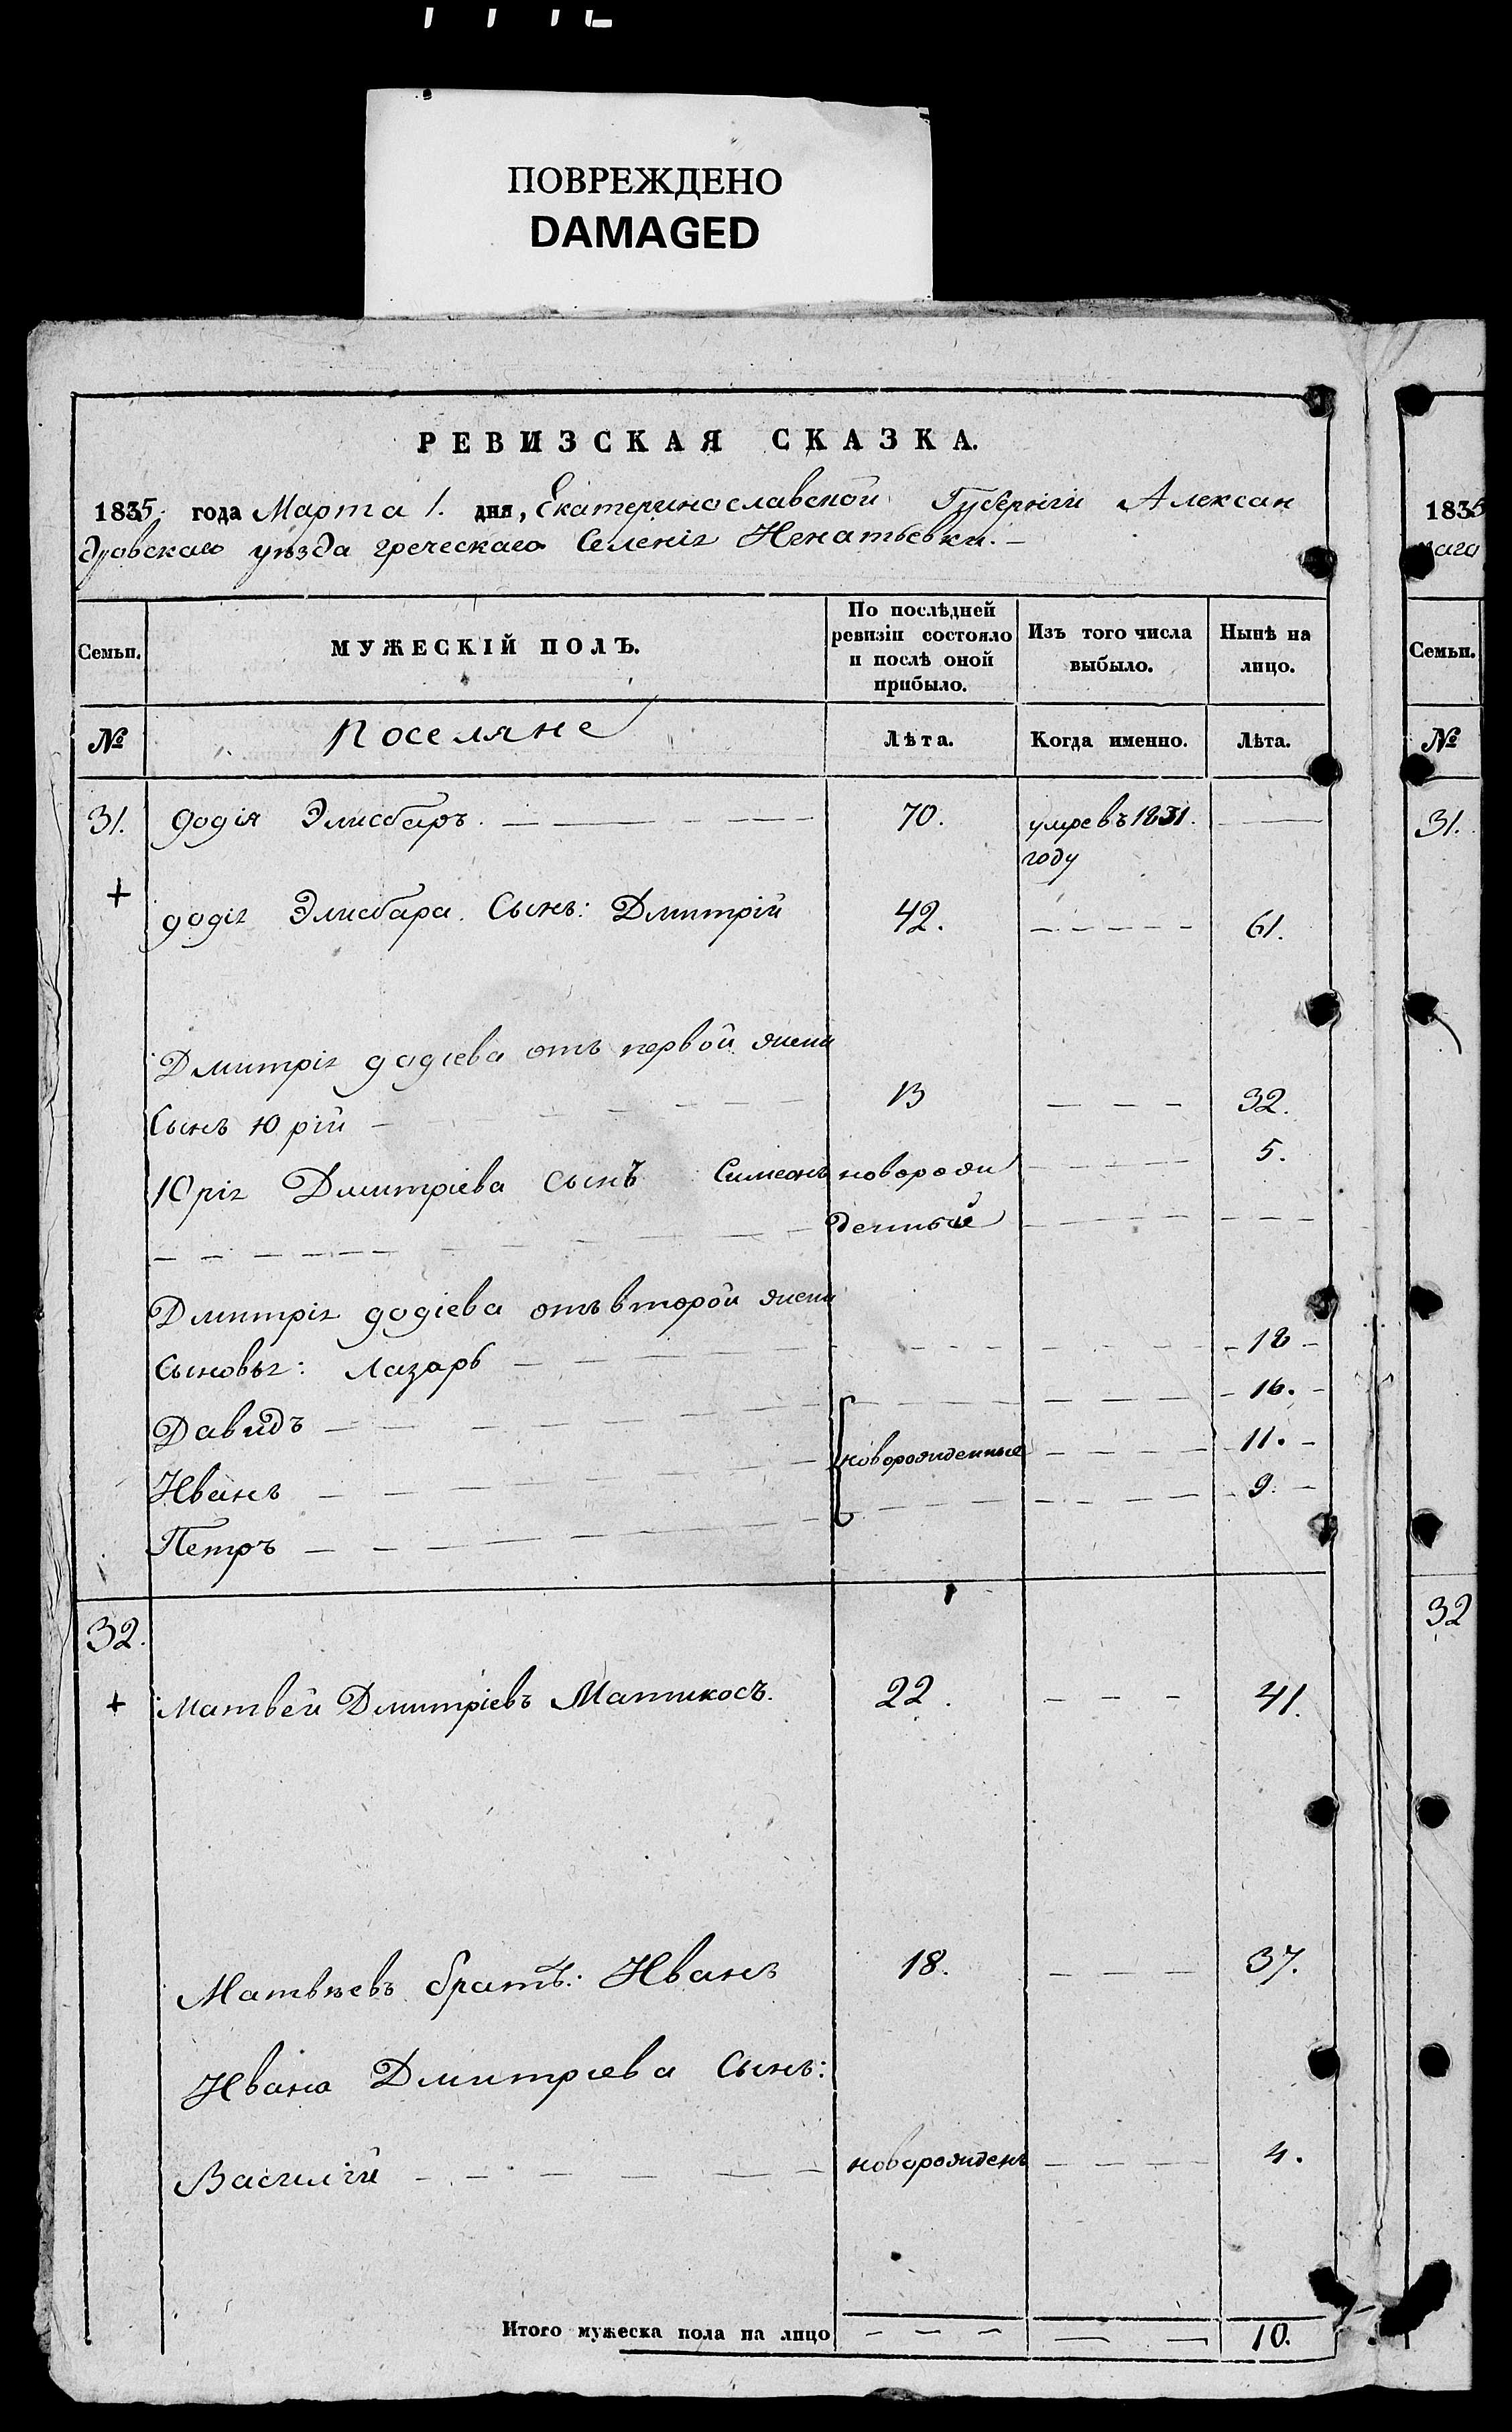 ПОВРЕЖДЕНО
DAMAGED
РЕВИЗСКАЯ СКАЗКА.
1835. года Марта 1. дня, Екатеринославской Губерніи Алексан
дровскаго уѣзда греческаго Селенія Игнатьевки. —
Семьи. МУЖЕСКІЙ ПОЛЪ. По послѣдней ревизіи состояло и послѣ оной прибыло. Изъ того числа выбыло. Нынѣ на лицо.
№ Поселяне Лѣта. Когда именно. Лѣта.
31. Додія Элисбаръ. 70. умре въ 1831. году
+ Додія Элисбара Сынъ: Дмитрій 42. 61.
Дмитрія Додіева отъ первой жены
Сынъ Юрій 13 32.
Юрія Дмитріева сынъ Симеонъ новорож 5.
денный
Дмитрія Додіева отъ второй жены
Сыновья: Лазарь 18
Давидъ 16.
Иванъ новорожденные 11.
Петръ 9.
32.
+ Матвей Дмитріевъ Матикосъ. 22. 41.
Матвѣевъ братъ: Иванъ 18. 37.
Ивана Дмитріева Сынъ:
Василій новорожденъ 4.
Итого мужеска пола на лицо 10.
1835
Семьи.
№
31.
32